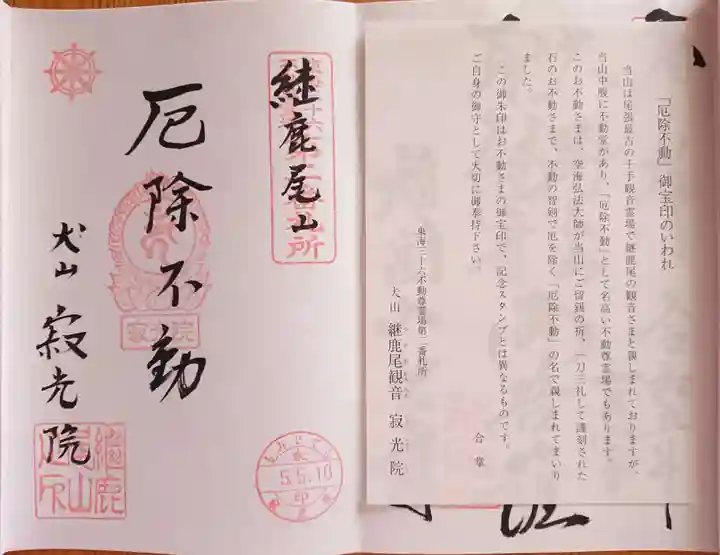 「厄除不動」御宝印のいわれ
当山は尾張最古の千手観音霊場で継鹿尾の観音さまと親しまれておりますが、
当山中腹に不動堂があり、「厄除不動」として名高い不動尊霊場でもあります。
このお不動さまは、空海弘法大師が当山にご留錫の祈、一刀三礼して謹刻された
石のお不動さまで、不動の智剣で厄を除く「厄除不動」の名で親しまれてまいり
ました。
この御朱印はお不動さまの御宝印で、記念スタンプとは異なるものです。
ご自身の御守として大切に御奉持下さい。
合掌
東海三十六不動尊霊場第二番札所
犬山 継鹿尾観音 寂光院
継鹿尾山
厄除不動
犬山 寂光院
5.5.10